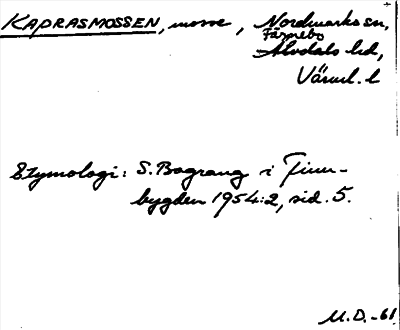 KAPRASMOSSEN, mosse, Nordmarks sn,
Färnebo
Älvdals hd,
Värml. l
Etymologi: S. Bograng i Finn-
bygden 1954:2, sid. 5.
M.D.-61